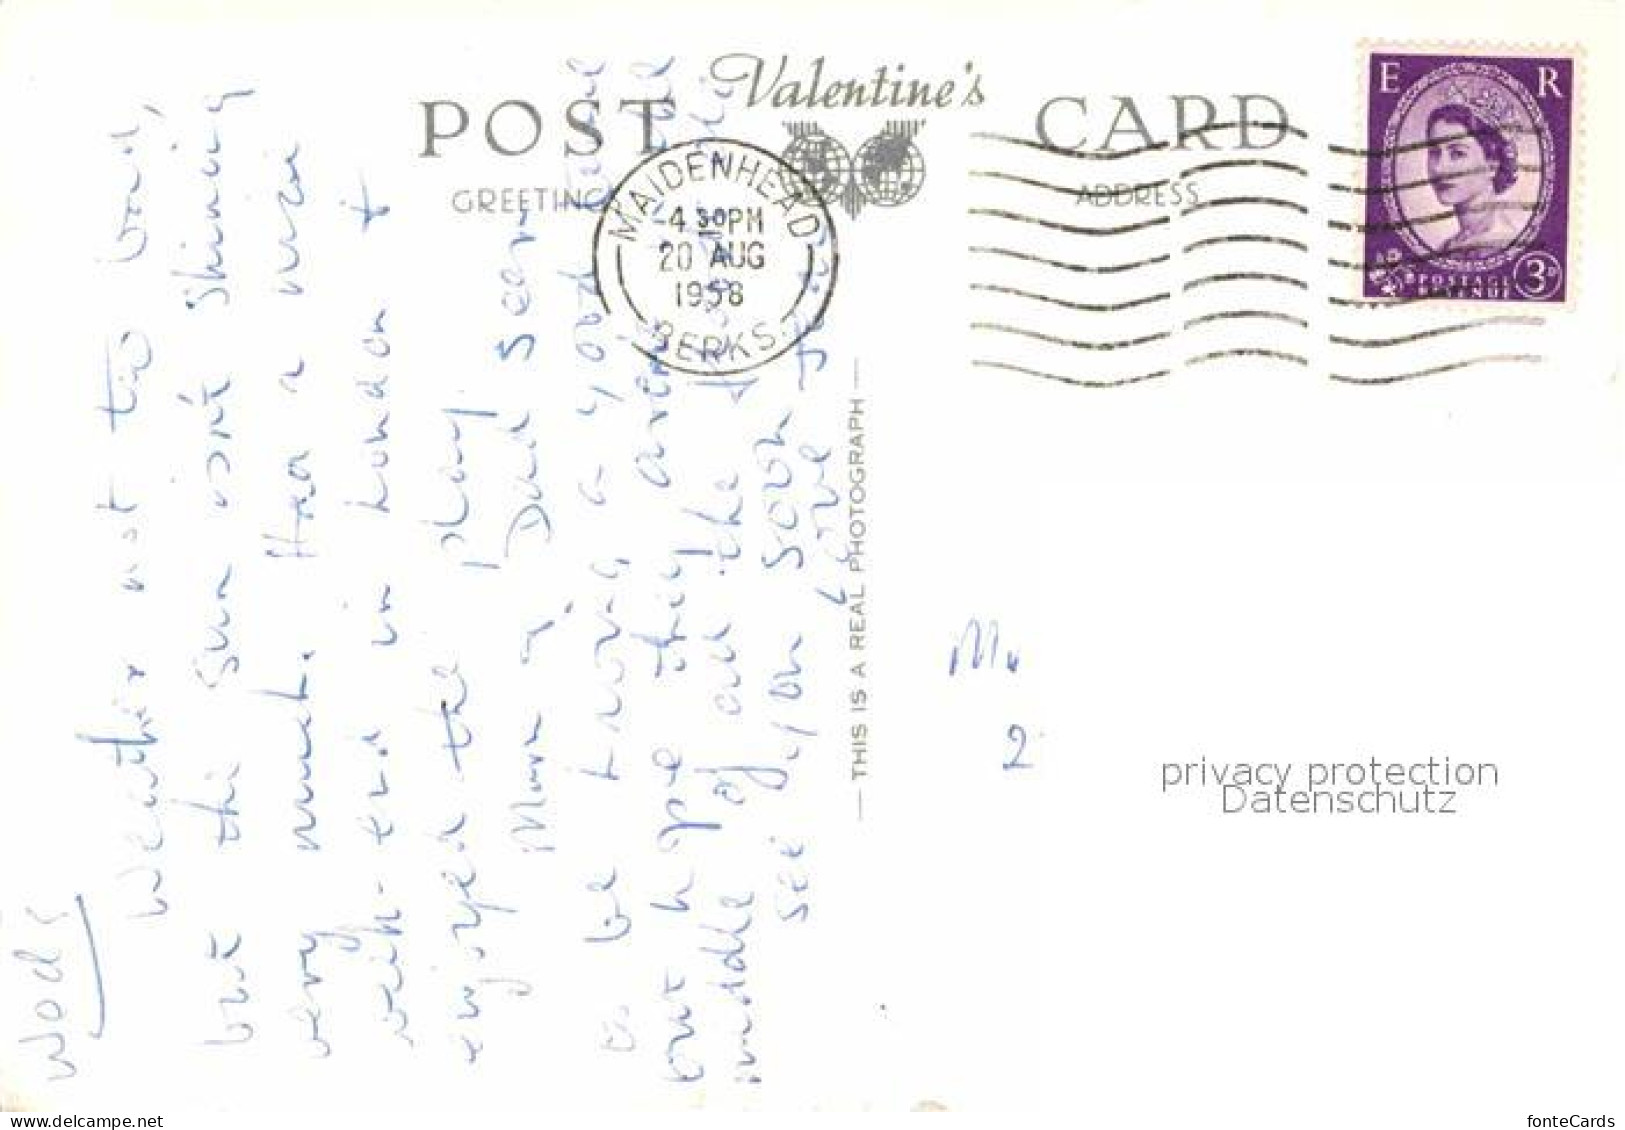 POST Valentine's CARD
GREETINGS
ADDRESS
E R
POSTAGE REVENUE 3D
MAIDENHEAD
4 30 PM
20 AUG
1958
BERKS.
THIS IS A REAL PHOTOGRAPH
Weds
Weather not too bad,
but the sun isn't shining
very much. Had a nice
week-end in London &
enjoyed the play.
Mum & Dad seem
to be having a good time
but hope they
middle of all the
see you soon
love
M.
2
privacy protection
Datenschutz
www.delcampe.net
fonteCards